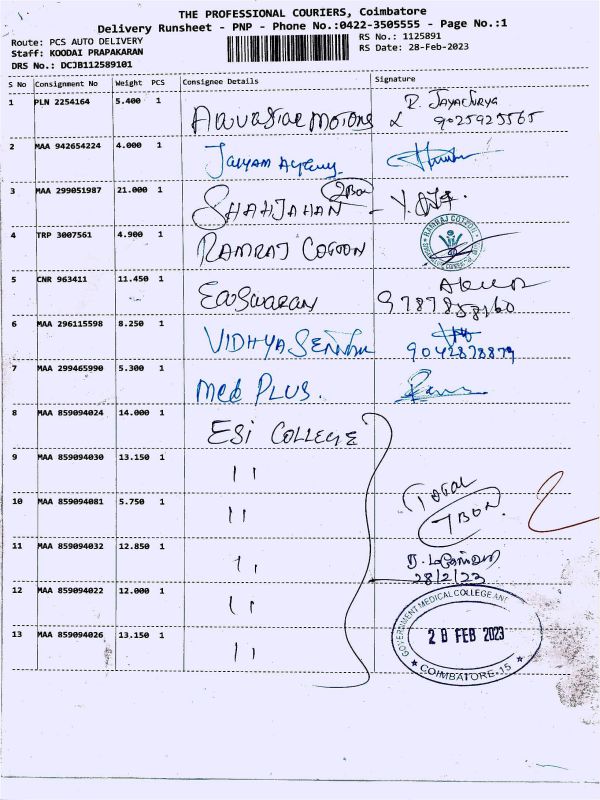 THE PROFESSIONAL COURIERS, Coimbatore
Delivery Runsheet - PNP - Phone No.:0422-3505555 - Page No.:1
Route: PCS AUTO DELIVERY
Staff: KOODAI PRAPAKARAN
DRS No.: DCJB112589101
RS No.: 1125891
RS Date: 28-Feb-2023
S No Consignment No Weight PCS Consignee Details Signature
1 PLN 2254164 5.400 1 MOTORS R. JAYASURYA
9025925565
2 MAA 942654224 4.000 1 Jaiyam Agency
3 MAA 299051987 21.000 1 SHAHJAHAN 2 Box
4 TRP 3007561 4.900 1 RAMRAJ COTTON RAMRAJ COTTON
5 CNR 963411 11.450 1 EASWARAN
9787858160
6 MAA 296115598 8.250 1 VIDHYA
9042878879
7 MAA 299465990 5.300 1 Med PLUS.
8 MAA 859094024 14.000 1 ESI COLLEGE
9 MAA 859094030 13.150 1 11
10 MAA 859094081 5.750 1 11 TOTAL
7 BOX.
11 MAA 859094032 12.850 1 11
28/2/23
12 MAA 859094022 12.000 1 11
GOVERNMENT MEDICAL COLLEGE AND
13 MAA 859094026 13.150 1 11 28 FEB 2023
★ COIMBATORE-15 ★